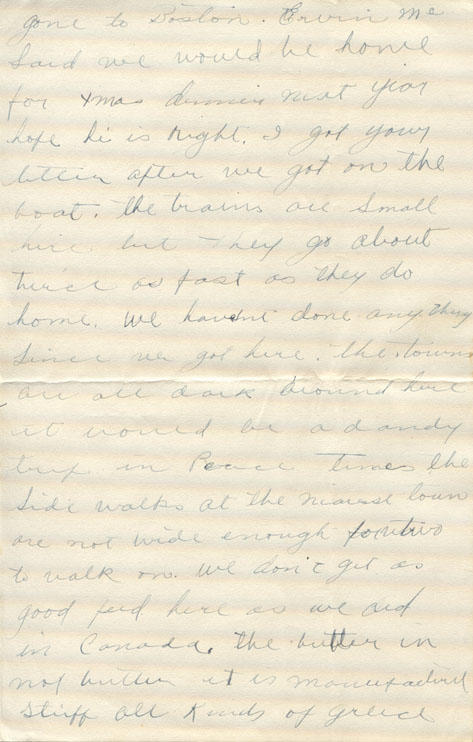 gone to Boston. Ervin Mc
said we would be home
for Xmas dinner next year
hope he is right. I got your
letter after we got on the
boat. The trains are small
here but they go about
twice as fast as they do
home. We havent done anything
since we got here. The towns
are all dark around here
it would be a dandy
trip in Peace times the
side walks at the nearest town
are not wide enough for two
to walk on. We don't get as
good feed here as we did
in Canada. The butter in
not butter it is manufactured
stuff all kinds of